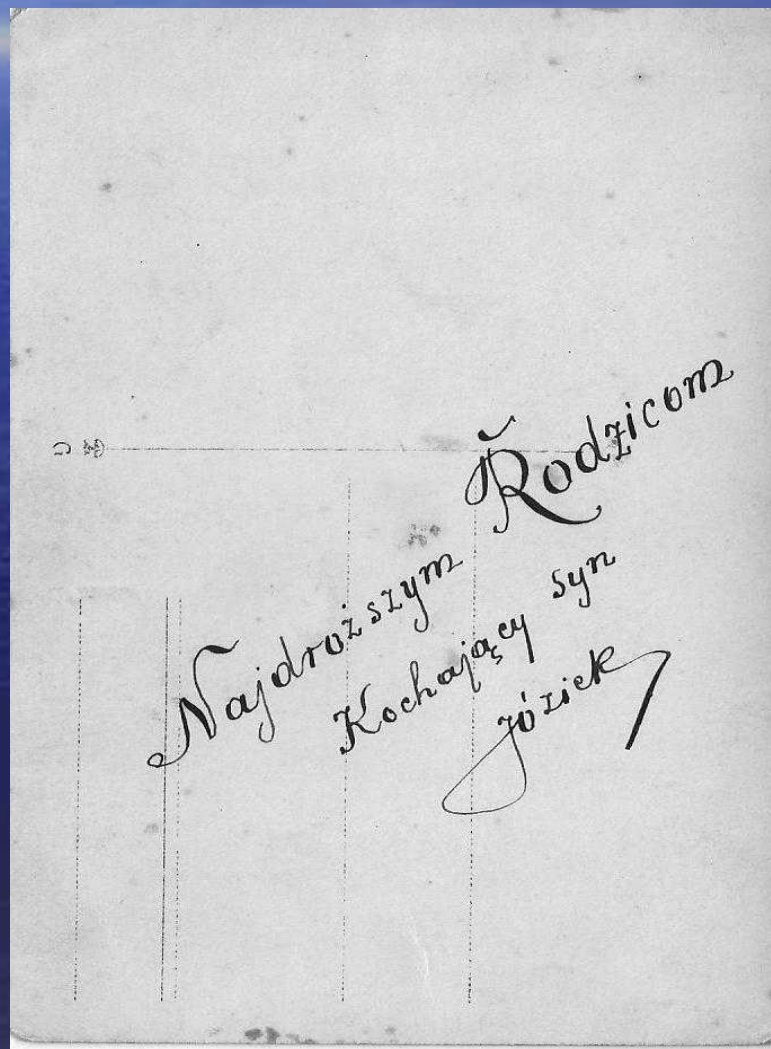 Najdroższym Rodzicom
Kochający syn
Józiek